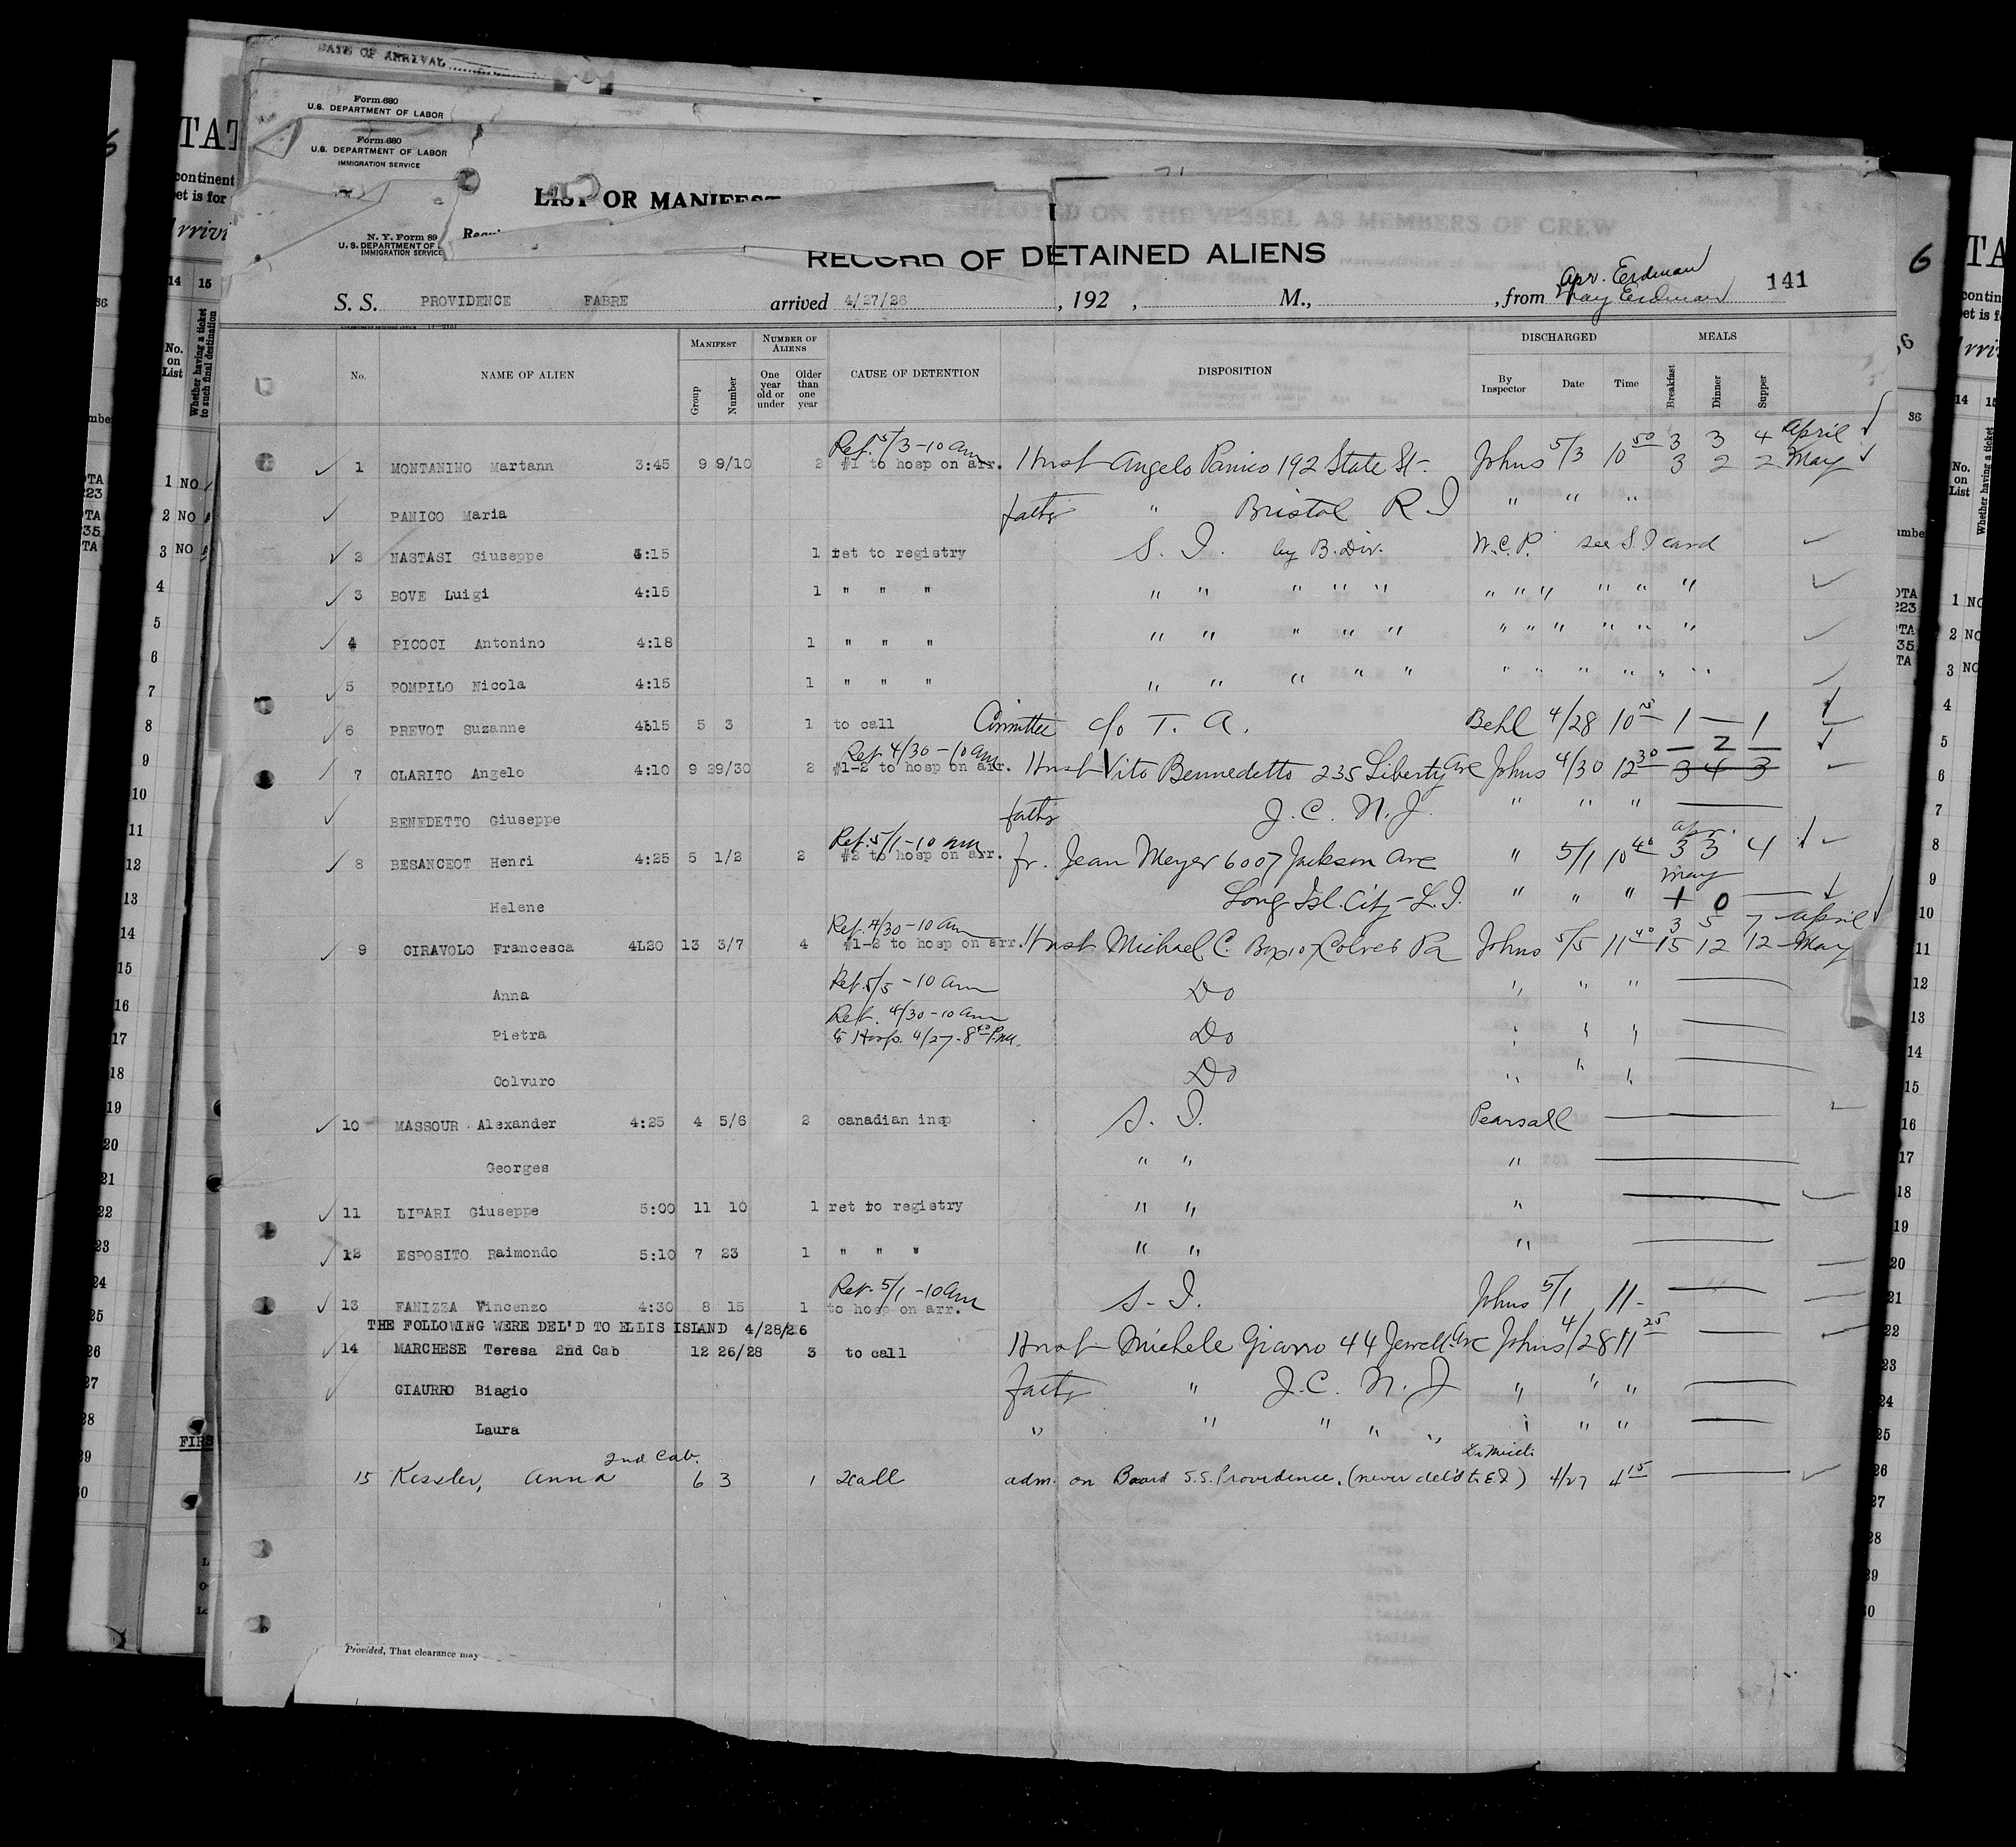 DATE OF ARRIVAL
Form 680
U.S. DEPARTMENT OF LABOR
Form 680
U.S. DEPARTMENT OF LABOR
IMMIGRATION SERVICE
LIST OR MANIFEST
EMPLOYED ON THE VESSEL AS MEMBERS OF CREW
N. Y. Form 89
U. S. DEPARTMENT OF
IMMIGRATION SERVICE
RECORD OF DETAINED ALIENS
Apr. Erdman
S. S. PROVIDENCE FABRE arrived 4/27/26, 192 , M., , from May Erdman 141
No. NAME OF ALIEN MANIFEST Group Number NUMBER OF ALIENS One year old or under Older than one year CAUSE OF DETENTION DISPOSITION DISCHARGED By Inspector Date Time MEALS Breakfast Dinner Supper
Ret. 5/3-10 am 3 3 4 April
1 MONTANINO Martann 3:45 9 9/10 2 #1 to hosp on arr. Husb Angelo Panico 192 State St. Johns 5/3 10 50 3 2 2 May
PANICO Maria father " Bristol R I " " "
2 NASTASI Giuseppe 4:15 1 ret to registry S. I. by B. Div. W.C.P. see S. I card
3 BOVE Luigi 4:15 1 " " " " " " " " " " " " " "
4 PICOCI Antonino 4:18 1 " " " " " " " " " " " " " "
5 POMPILO Nicola 4:15 1 " " " " " " " " " " " " " "
6 PREVOT Suzanne 4L15 5 3 1 to call Committee c/o T. A. Behl 4/28 10 1 — 1
Ret 4/30-10 am — 2 —
7 CLARITO Angelo 4:10 9 29/30 2 #1-2 to hosp on arr. Husb Vito Bennedetto 235 Liberty Ave Johns 4/30 12 30 3 4 3
BENEDETTO Giuseppe father J. C. N. J. " " "
Ret. 5/1-10 am apr.
8 BESANCEOT Henri 4:25 5 1/2 2 #2 to hosp on arr. fr. Jean Meyer 6007 Jackson Ave " 5/1 10 40 3 3 4
may
Helene Long Isl. City - L. I. " " " + 0 —
Ret. 4/30-10 am 3 5 7 April
9 GIRAVOLO Francesca 4L20 13 3/7 4 #1-2 to hosp on arr. Husb Michael C. Box 107 Colver Pa Johns 5/5 11 40 15 12 12 May
Anna Ret. 5/5-10 am Do " " "
Ret. 4/30-10 am
Pietra to Hosp. 4/27-8 P.M. Do " " "
Colvuro Do " " "
10 MASSOUR Alexander 4:25 4 5/6 2 canadian insp S. I. Pearsall
Georges " " "
11 LIPARI Giuseppe 5:00 11 10 1 ret to registry " " "
12 ESPOSITO Raimondo 5:10 7 23 1 " " " " " "
Ret. 5/1-10 am
13 FANIZZA Vincenzo 4:30 8 15 1 to hosp on arr. S. I. Johns 5/1 11-
THE FOLLOWING WERE DEL'D TO ELLIS ISLAND 4/28/26
14 MARCHESE Teresa 2nd Cab 12 26/28 3 to call Husb Michele Giarro 44 Jewell Ave Johns 4/28 11 25
GIAURRO Biagio father " J. C. N. J " " "
Laura " " " " " " " "
15 Kessler, Anna 2nd Cab. 6 3 1 2call adm. on Board S.S. Providence. (never del'd to E.I) 4/27 4 15
Provided, That clearance may